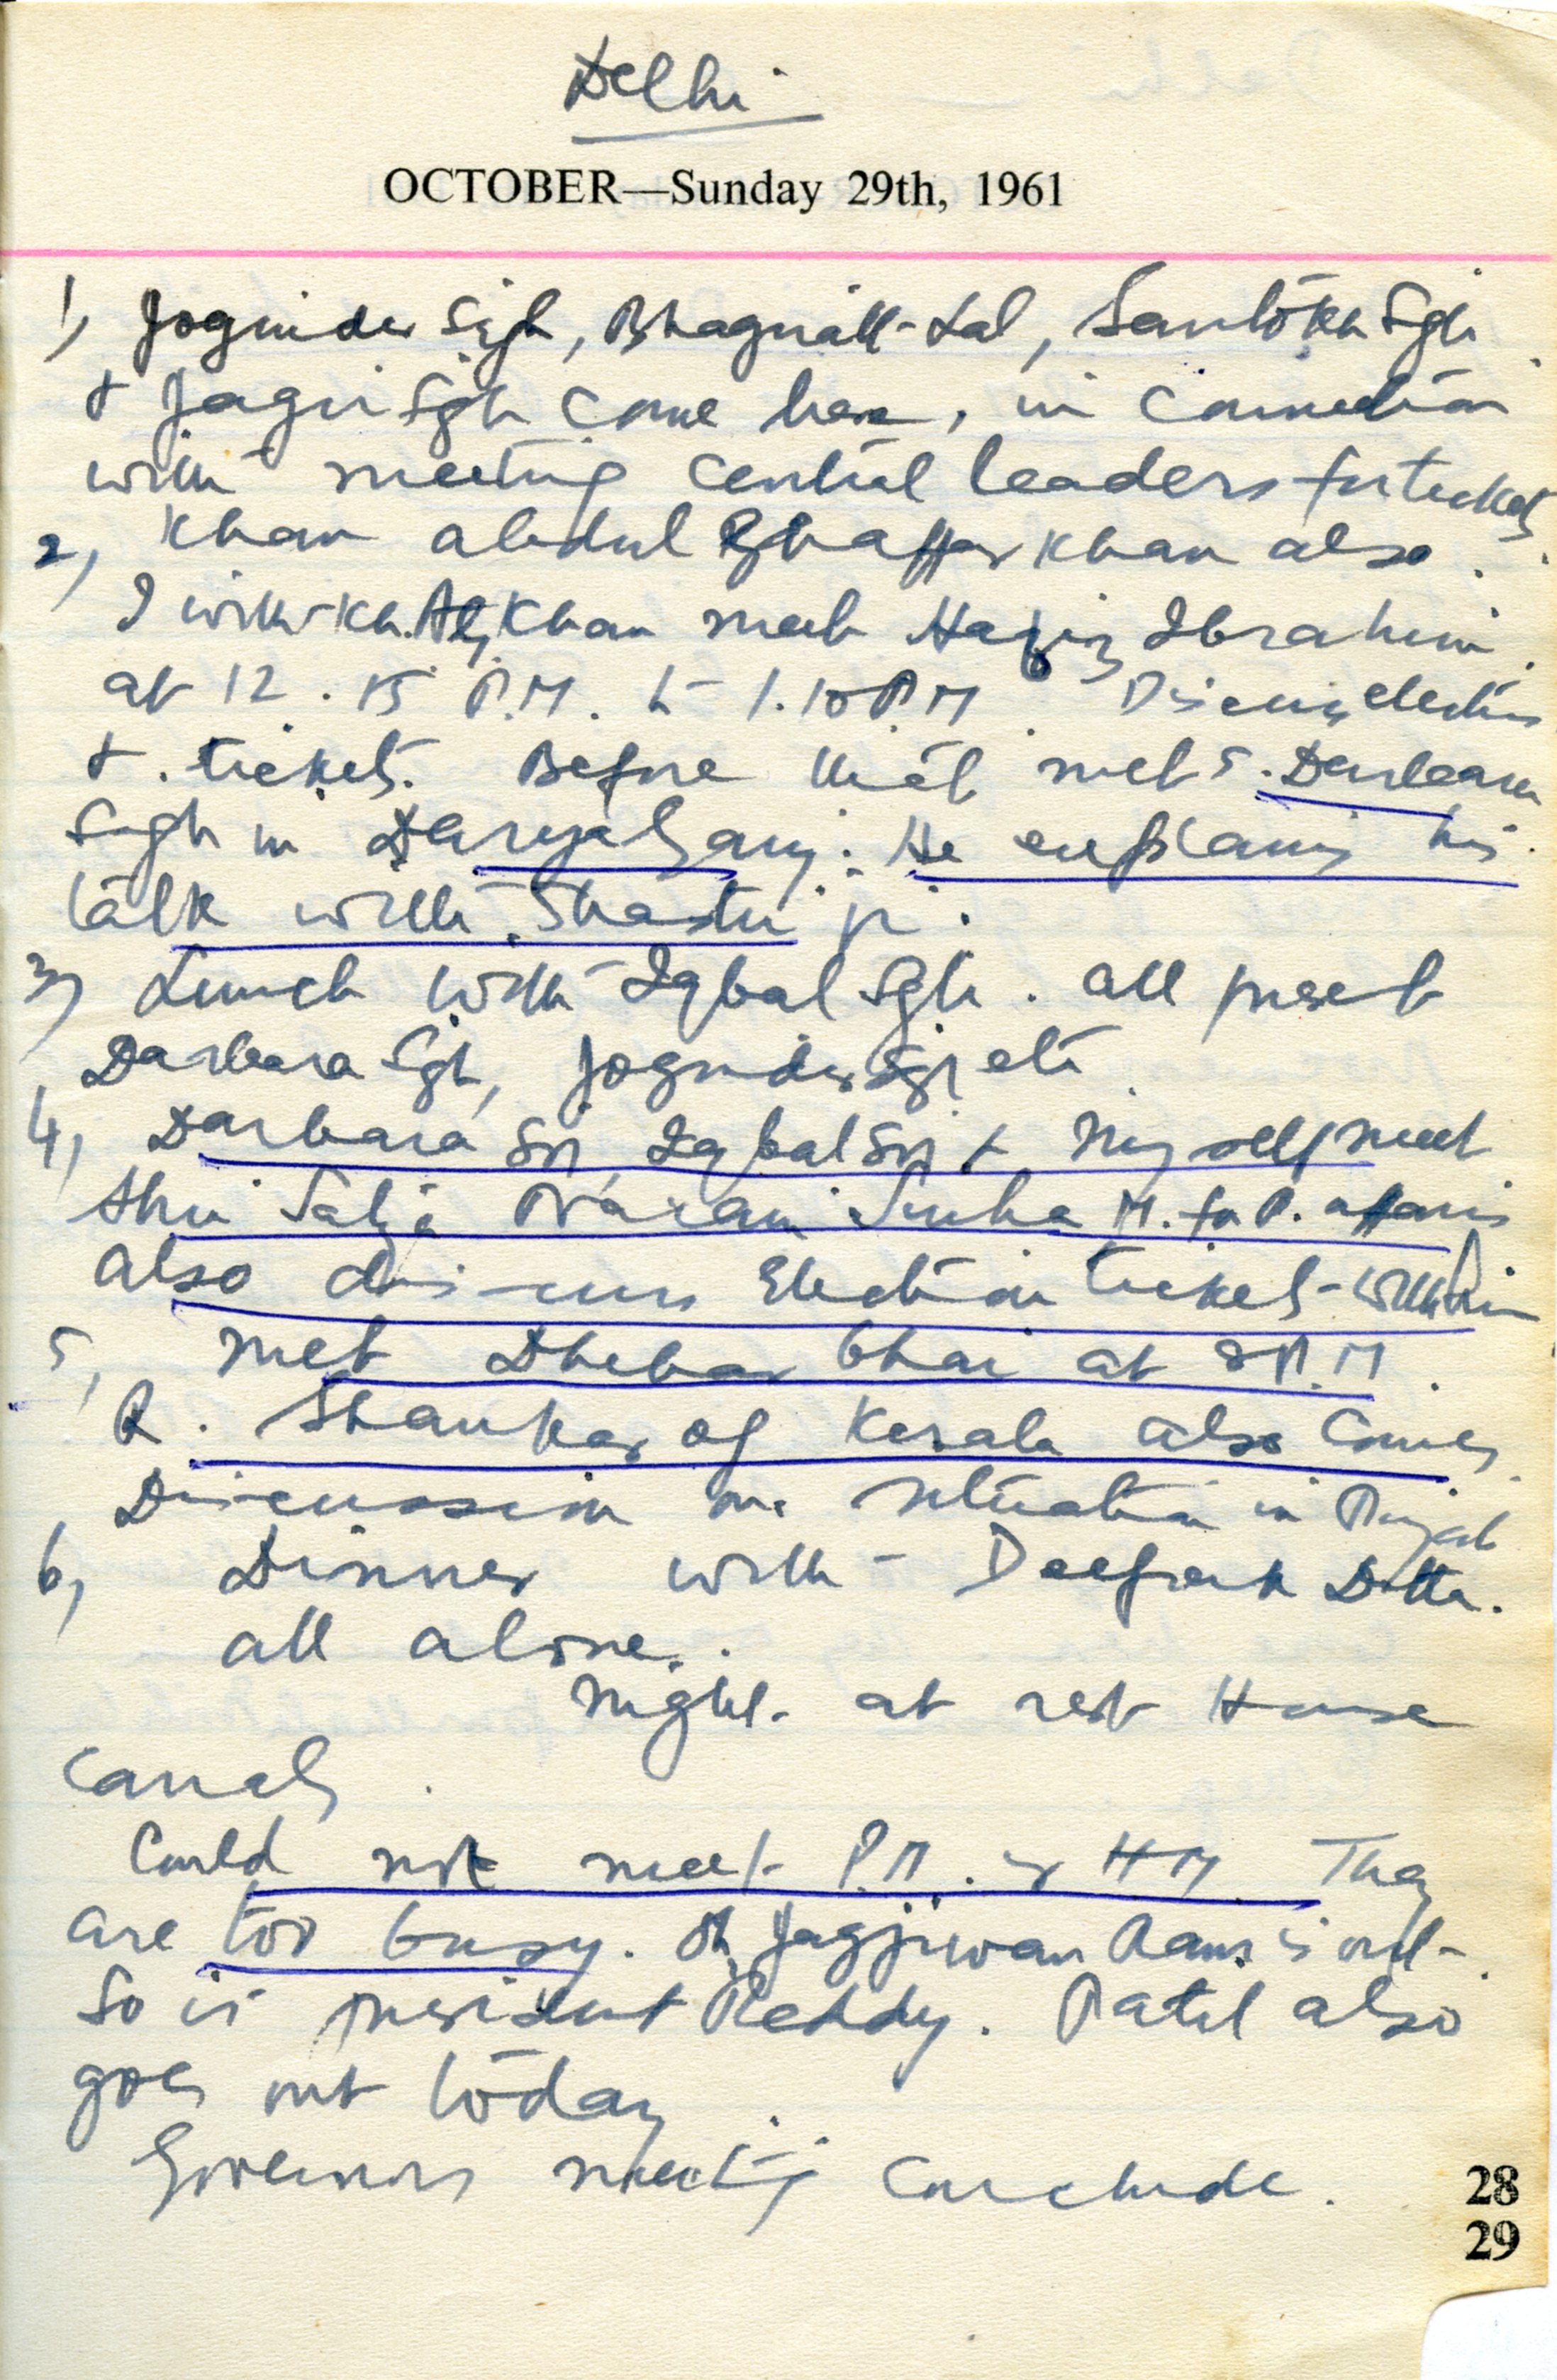 Delhi
OCTOBER—Sunday 29th, 1961
1) Joginder Sigh, Bhagnatt-Lal, Santokh Sgh
+ Jagir Sgh come here, in connection
with meeting central leaders for tickets
2) Khan abdul Ghaffar Khan also.
I with Kh. Khan meet Hafiz Ibrahim.
at 12.15 P.M. to 1.10 P.M. Discuss elections
+ tickets. Before that met S. Darbara
Sigh in DaryaGanj. He explains his
talk with Shastri ji.
3) Lunch with Iqbal Sgh. all preset
Darbara Sgh, Joginder Sgh etc
4) Darbara Sgh Iqbal Sgh + Myself meet
Shri Satya Narain Sinha M. for P. affairs
also discuss Election tickets with him
5) met Dhebar bhai at 8 P.M.
R. Shanker of Kerala also comes.
Discussion on situation in Punjab
6) Dinner with Deepak Dutta.
all alone.
Night at rest House
canals.
Could not meet P.M. or HM They
are too busy. Sh. Jagjiwan Ram is out.
So is president Reddy. Patil also
goes out today
Governors meeting conclude.
28
29